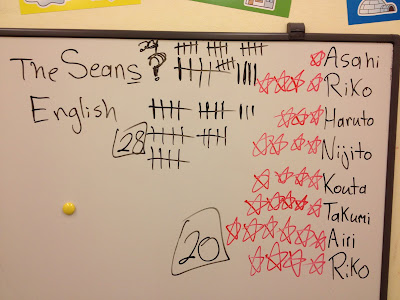 The Seans ?
English
28
20
Asahi
Riko
Haruto
Nijito
Kouta
Takumi
Airi
Riko